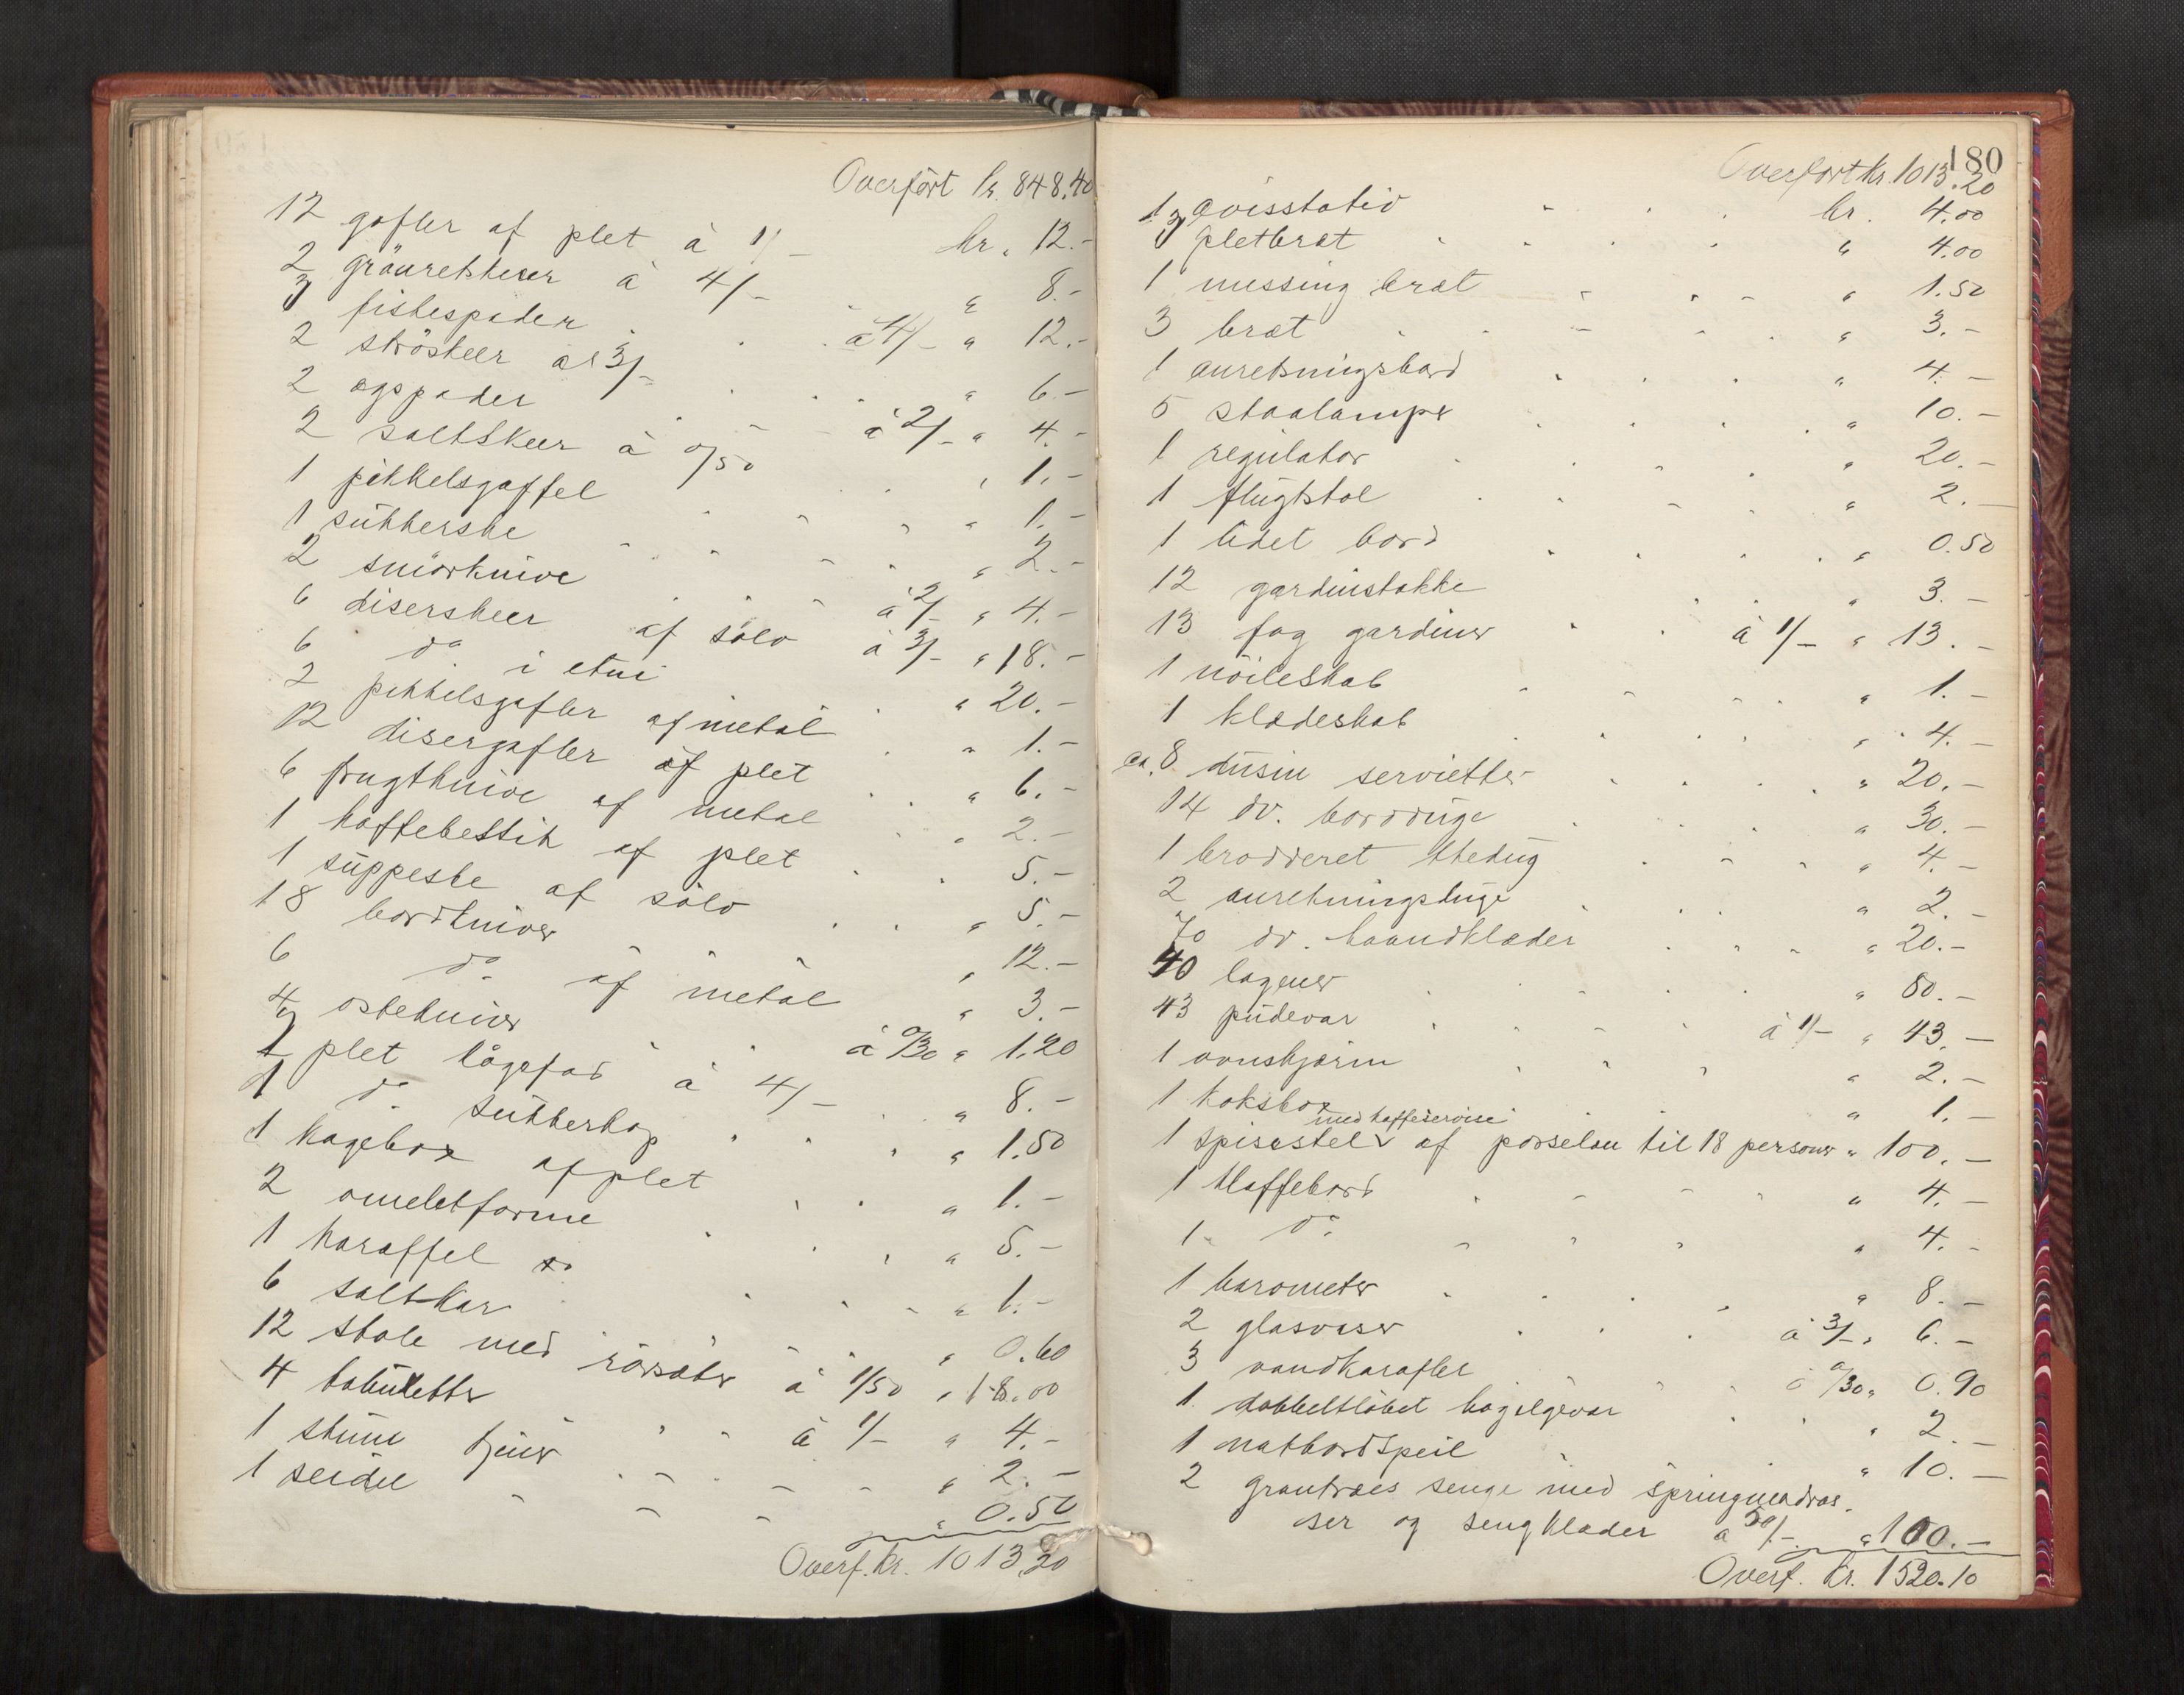 Overført kr. 848.40
12 gafler af plet à 1/- kr. 12.-
2 grönretskeer à 4/- " 8.-
3 fiskespader à 4/- " 12.-
2 ströskeer à 3/- " 6.-
2 ægspader à 2/- " 4.-
2 saltskeer à 0/50 " 1.-
1 pikkelsgaffel " 1.-
1 sukkerske " 2.-
2 smörknive à 2/- " 4.-
6 disersheer af sölv à 3/- " 18.-
6 do i etui " 20.-
2 pikkelsgafler af metal " 1.-
12 disergafler af plet " 6.-
6 frugtknive af metal " 2.-
1 kaffebestik af plet 5.-
1 suppeske af sölv " 5.-
18 bordkniver " 12.-
6 do af metal " 3.-
4 ostekniver à 0/30 " 1.20
2 plet lågefad à 4/- " 8.-
1 do sukkerkop " 1.50
1 kagebox af plet " 1.-
2 omeletforme " 5.-
1 karaffel " 1.-
6 saltkar " 0.60
12 stole med rörsæter à 1/50 " 18.00
4 taburetter à 1/- " 4.-
1 stum tjener " 2.-
1 seidel " 0.50
Overf. kr. 1013.20
180
Overført kr. 1013.20
1 avisstativ kr. 4.00
3 pletbræt " 4.00
1 messing bræt " 1.50
3 bræt " 3.-
1 anretningsbord " 4.-
5 staalamper " 10.-
1 regulator " 20.-
1 flugtstol " 2.-
1 lidet bord " 0.50
12 gardinstokke " 3.-
13 fag gardiner à 1/- " 13.-
1 nöileskab " 1.-
1 klædeskab " 4.-
ca. 8 dusin servietter " 20.-
14 dv. bordduge " 30.-
1 broderet thedug " 4.-
2 anretningsduge " 2.-
70 dv. haandklæder " 20.-
40 lagener " 80.-
43 pudevar à 1/- " 43.-
1 ovnskjærm " 2.-
1 koksbox " 1.-
med kaffeservise
1 spisestel af porselæn til 18 personer " 100.-
1 klaffebord " 4.-
1 do " 4.-
1 barometer " 8.-
2 glasvaser à 3/- " 6.-
3 vandkarafler à 0/30 " 0.90
1 dobbeltløbet hagelgevær " 2.-
1 natbordspeil " 10.-
2 grantræes senge med springmadras-
ser og sengklæder à 50/- " 100.-
Overf. kr. 1520.10